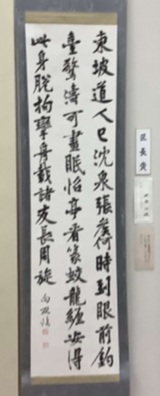 東坡道人已沈泉張侯何時到眼前釣
臺驚濤可晝眠怡亭看篆蛟龍纏安得
此身脫拘攣舟載諸友長周旋
区長賞